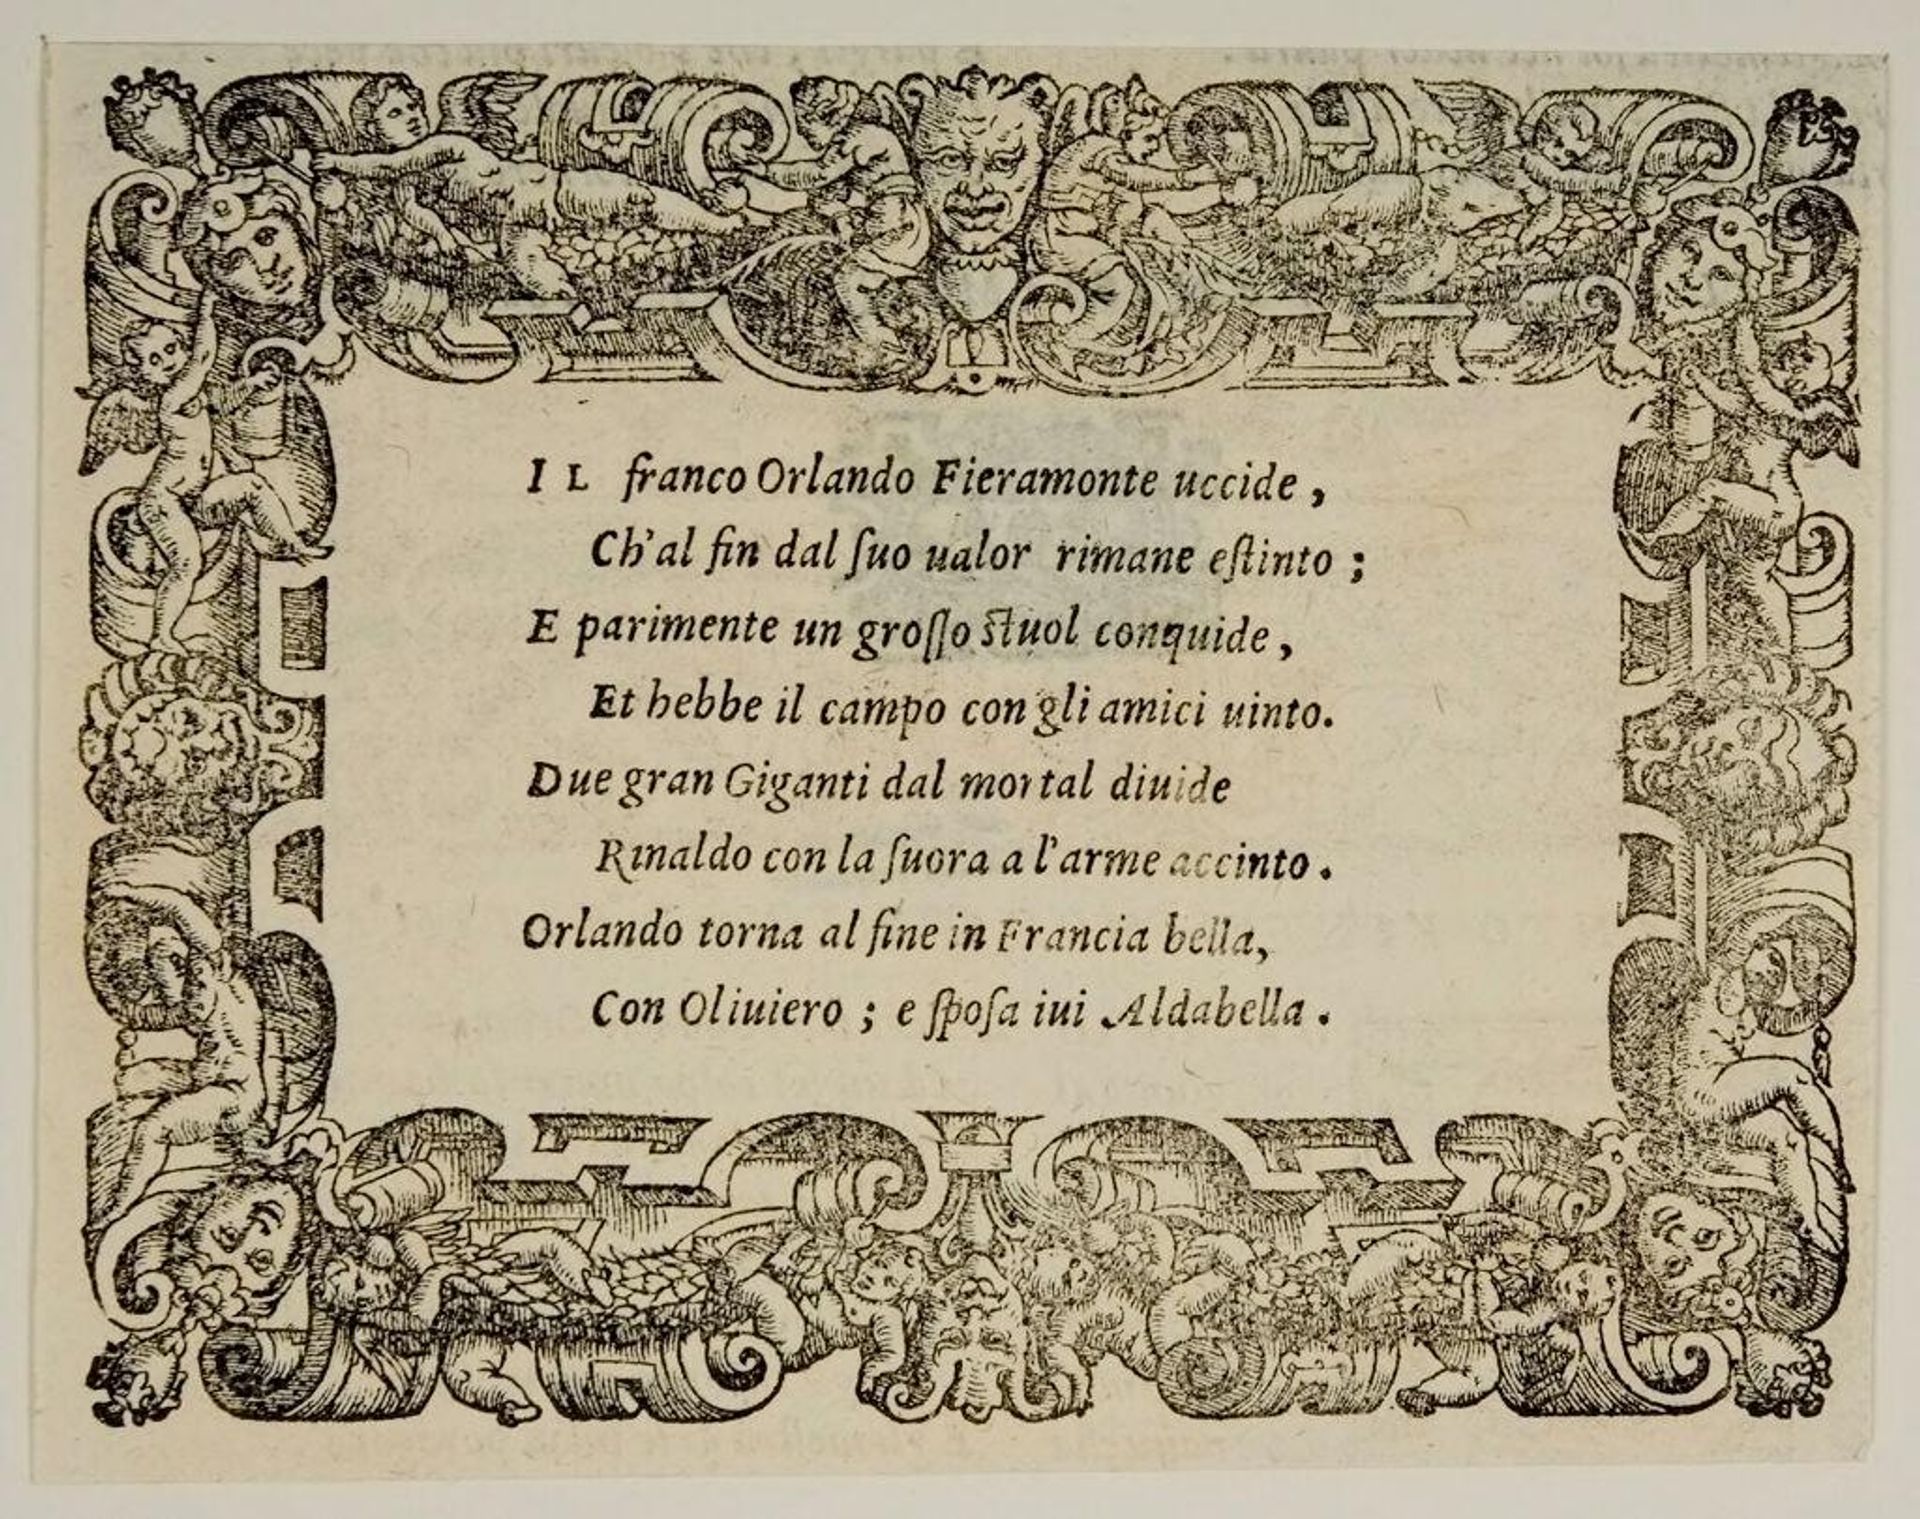 IL franco Orlando Fieramonte uccide,
Ch'al fin dal ſuo ualor rimane eſtinto;
E parimente un groſſo ſtuol conquide,
Et hebbe il campo con gli amici uinto.
Due gran Giganti dal mortal diuide
Rinaldo con la ſuora a l'arme accinto.
Orlando torna al fine in Francia bella,
Con Oliuiero; e ſpoſa iui Aldabella.